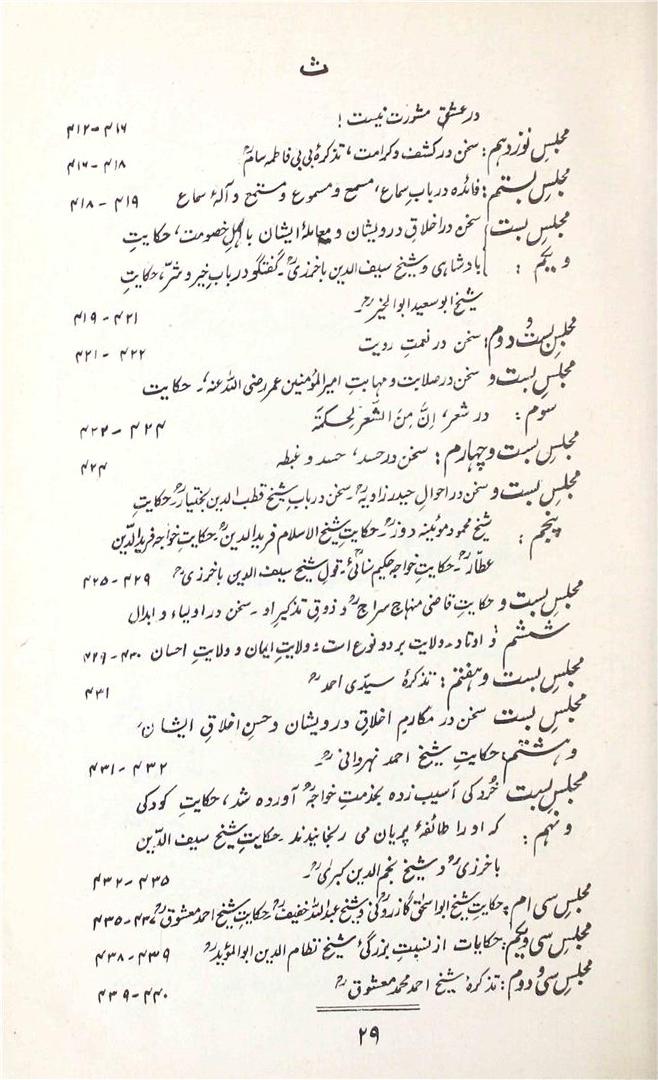 ث
در عشق مشورت نیست! ۴۱۲-۴۱۶
مجلسِ نوزدهم: سخن در کشف و کرامت، تذکرۂ بی بی فاطمہ سامؒ ۴۱۶-۴۱۸
مجلسِ بستم: فائدہ در بابِ سماع، مسمع و مسموع و مستمع و آلۂ سماع ۴۱۸-۴۱۹
مجلسِ بست سخن در اخلاقِ درویشان و معاملۂ ایشان با اہلِ خصومت، حکایتِ
و یکم: بادشاہی و شیخ سیف الدین باخرزیؒ۔ گفتگو در بابِ خیر و شرّ، حکایتِ
شیخ ابو سعید ابو الخیرؒ۔ ۴۱۹-۴۲۱
مجلسِ بست و دوم: سخن در نعمتِ رویت ۴۲۱-۴۲۲
مجلسِ بست و سخن در صلابت و مہابتِ امیر المؤمنین عمر رضی اللہ عنہ،۔ حکایت
سوم: در شعر، اِنَّ مِنَ الشِّعرِ لَحِکمَۃً ۴۲۲-۴۲۴
مجلسِ بست و چہارم: سخن در حسد، حسد و غبطہ ۴۲۴
مجلسِ بست و سخن در احوالِ حیدر زاویہؒ۔ سخن در بابِ شیخ قطب الدین بختیارؒ۔ حکایتِ
پنجم: شیخ محمود موئینہ دوزؒ۔ حکایتِ شیخ الاسلام فرید الدینؒ۔ حکایتِ خواجہ فرید الدّین
عطّارؒ۔ حکایتِ خواجہ حکیم سنائیؒ۔ قولِ شیخ سیف الدین باخرزیؒ ۴۲۵-۴۲۹
مجلسِ بست و حکایتِ قاضی منہاج سراجؒ و ذوقِ تذکیرِ او۔ سخن در اولیاء و ابدال
ششم و اوتاد۔ ولایت بر دو نوع است: ولایتِ ایمان و ولایتِ احسان ۴۲۹-۴۳۰
مجلسِ بست و ہفتم: تذکرۂ سیدّی احمدؒ ۴۳۱
مجلسِ بست سخن در مکارمِ اخلاقِ درویشان و حسنِ اخلاقِ ایشان،
و ہشتم حکایتِ شیخ احمد نہروانیؒ۔ ۴۳۱-۴۳۲
مجلسِ بست خُردکی آسیب زدہ بخدمتِ خواجہؒ آوردہ شد، حکایتِ کودکی
و نہم: کہ او را طائفۂ پریان می رنجانیدند۔ حکایتِ شیخ سیف الدّین
باخرزیؒ و شیخ نجم الدین کبریٰؒ۔ ۴۳۲-۴۳۵
مجلسِ سی ام: حکایتِ شیخ ابو اسحٰق گازرونیؒ و شیخ عبد اللہ خفیفؒ، حکایتِ شیخ احمد معشوقؒ ۴۳۵-۴۳۷
مجلسِ سی و یکم: حکایات از نسبتِ بزرگیٔ شیخ نظام الدین ابو المؤیدؒ ۴۳۸-۴۳۹
مجلسِ سی و دوم: تذکرۂ شیخ احمد محمد معشوقؒ ۴۳۹-۴۴۰
۲۹